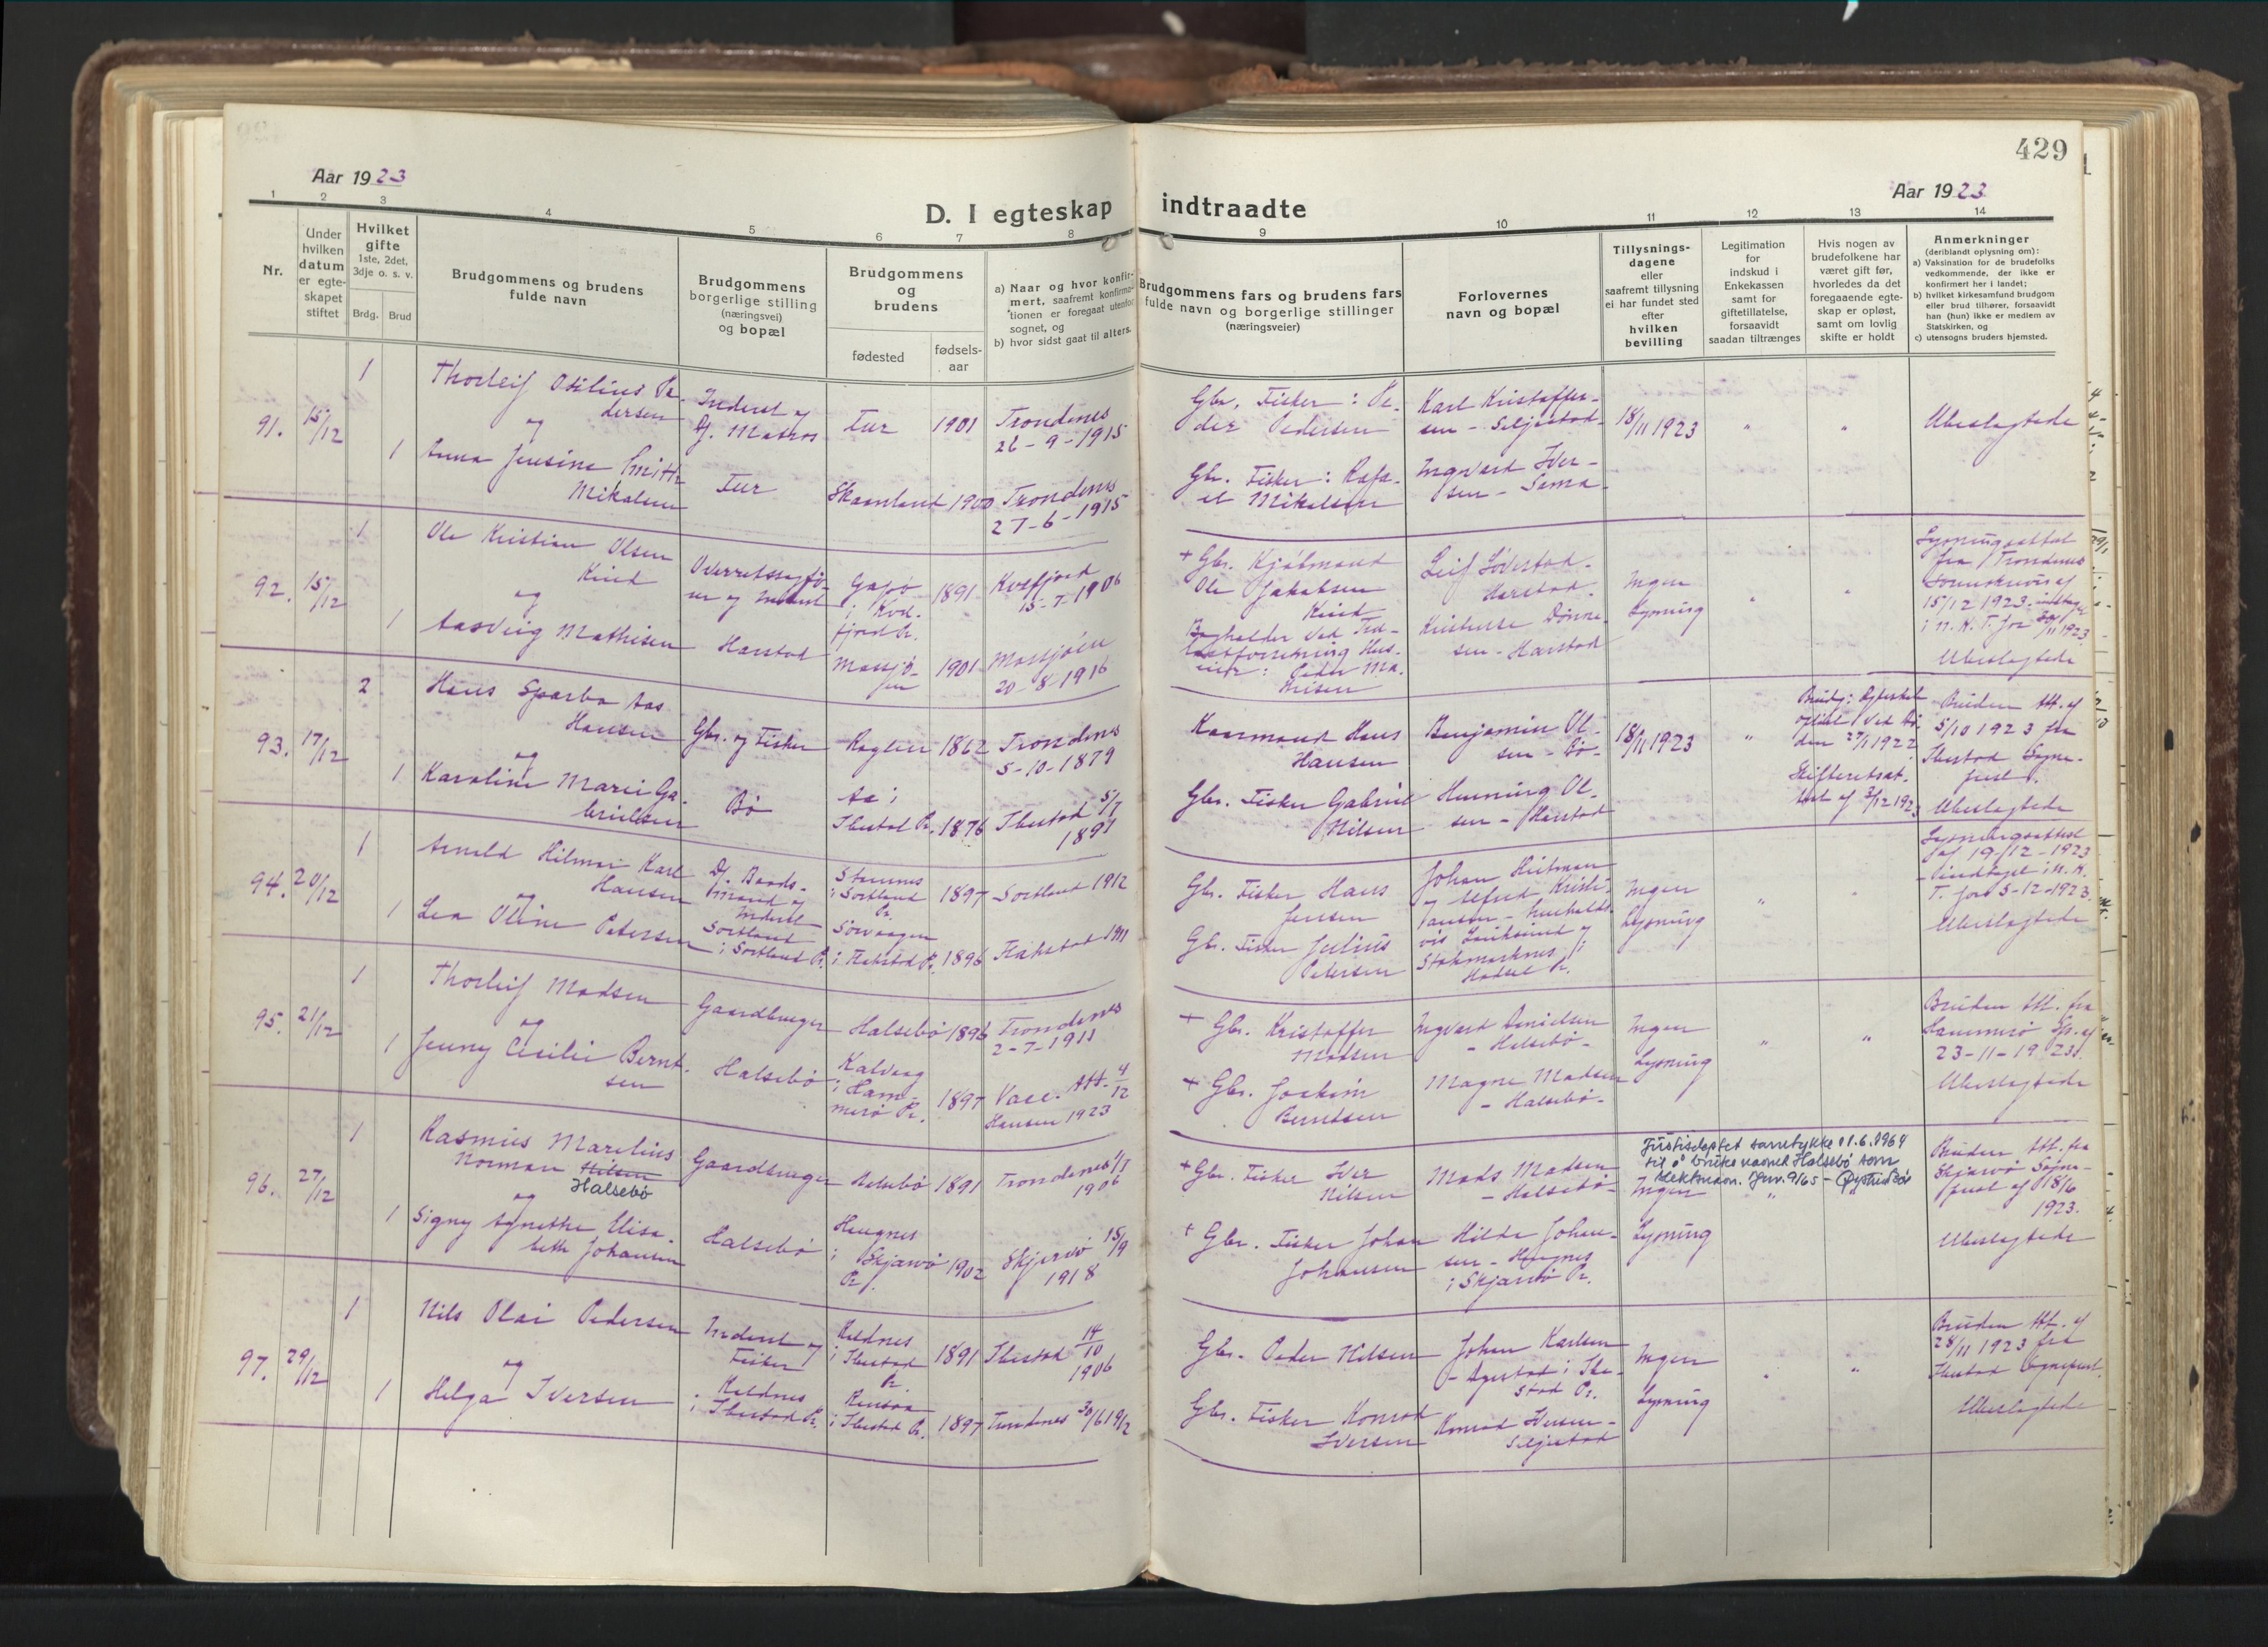 429
Aar 1923
Aar 1923
D. I egteskap indtraadte
1 2 3 4 5 6 7 8 9 10 11 12 13 14
Nr.
Under
hvilken
datum
er egte-
skapet
stiftet
Hvilket
gifte
1ste, 2det,
3dje o. s. v.
Brdg. Brud
Brudgommens og brudens
fulde navn
Brudgommens
borgerlige stilling
(næringsvei)
og bopæl
Brudgommens
og
brudens
fødested
fødsels-
aar
a) Naar og hvor konfir-
mert, saafremt konfirma-
tionen er foregaat utenfor
sognet, og
b) hvor sidst gaat til alters.
Brudgommens fars og brudens fars
fulde navn og borgerlige stillinger
(næringsveier)
Forlovernes
navn og bopæl
Tillysnings-
dagene
eller
saafremt tillysning
ei har fundet sted
efter
hvilken
bevilling
Legitimation
for
indskud i
Enkekassen
samt for
giftetillatelse,
forsaavidt
saadan tiltrænges
Hvis nogen av
brudefolkene har
været gift før,
hvorledes da det
foregaaende egte-
skap er opløst,
samt om lovlig
skifte er holdt
Anmerkninger
(deriblandt oplysning om):
a) Vaksination for de brudefolks
vedkommende, der ikke er
konfirmert her i landet;
b) hvilket kirkesamfund brudgom
eller brud tilhører, forsaavidt
han (hun) ikke er medlem av
Statskirken, og
c) utensogns bruders hjemsted.
91. 15/12
1
Thorleif Odilius Pe-
dersen
og
1
Anna Jensine Smith
Mikalsen
Inderst og
Matros
1901
Trondenes
26-9-1915
Skaanland 1900
Trondenes
27-6-1915
Gbr. Fisker: Pe-
der Pedersen
Gbr. Fisker: Rafa-
el Mikalsen
Karl Kristoffer-
sen - Seljestad
Ingvard Iver-
sen - Sama
18/11 1923
" "
Ubeslegtede
92. 15/12
1
Ole Kristian Olsen
Kind
og
1
Aasveig Mathisen
Overretssagfø-
rer og Inderst
Harstad
Gapø
i Kvæ-
fjord Pr.
1891
Kvæfjord
15-7-1906
Mosjø-
en
1901
Mosjøen
20-8-1916
+ Gbr. Kjøbmand
Ole Jakobsen
Kind
Peder Ma-
thisen
Leif Løvstad -
Harstad.
sen - Harstad
Ingen
Lysning
Lysningsattest
fra Trondenes
Sorenskriver af
15/12 1923
i N. K. T. for 30/11 1923
Ubeslegtede
93. 17/12
2
Hans Sparbo Aas
Hansen
og
1
Karoline Marie Ga-
brielsen
Gbr. og Fisker
Bø
1862
Trondenes
5-10-1879
Aa i
Ibestad Pr. 1876
Ibestad 5/7
1891
Kaarmand Hans
Hansen
Gbr. Fisker Gabriel
Nilsen
Benjamin Ol-
sen - Bø -
Henning Ol-
sen - Harstad
18/11 1923
"
Brudg: Egteskab
opløst ved Dø-
den 27/1 1922
Skifteretsat-
test af 3/12 1923
Bruden Att. af
5/10 1923 fra
Ibestad Sogne-
prest.
Ubeslegtede
94. 20/12
1
Arnold Hilmar Karl
Hansen
og
1
Lea Oline Petersen
Df. Baads-
mand og
Inderst
Sortland
i Sortland Pr.
Stamnes
i Sortland
Pr.
1897
Sortland 1912
Sørvaagen
i Flakstad Pr. 1896
Flakstad 1911
Gbr. Fisker Hans
Jensen
Gbr. Fisker Julius
Petersen
Stokmarknes i
Hadsel Pr.
Ingen
Lysning
"
Lysningsattest
af 19/12-1923
indtaget i N. K.
T. for 5-12-1923.
Ubeslegtede
95. 21/12
1
Thorleif Madsen
og
1
Jenny Cecilie Bernt-
sen
Gaardbruger
Halsebø
Halsebø 1896
Trondenes
2-7-1911
Kalvaag
i Ham-
merø Pr.
1897
Vacc. Att. 4/12
Hansen 1923
+ Gbr. Kristoffer
Madsen
+ Gbr. Joakim
Berntsen
Ingvard Danielsen
- Halsebø -
Magne Madsen
- Halsebø -
Ingen
Lysning
" "
Bruden Att. fra
Hammerø Spr. af
23-11-1923.
Ubeslegtede
96. 27/12
1
Rasmus Marelius
Norman Nilsen
Halsebø
og
1
Signy Agnethe Elisa-
beth Johansen
Gaardbruger
Halsebø
Halsebø 1891
Trondenes 1/7
1906
Haugnes
i Skjærvø
Pr.
1902
Skjervø 15/9
1918
+ Gbr. Fisker Iver
Nilsen
+ Gbr. Fisker Johan
Johansen
Mads Madsen
- Halsebø -
Hilde Johan-
sen - Haugnes
i Skjærvø Pr.
Justisdeptet samtykke 11.6.1964
til å bruke navnet Halsebø som
slektsnavn. Jnr. 9165 -
Ingen
Lysning
Bruden Att. fra
Skjærvø Sogne-
prest af 18/6
1923.
Ubeslegtede
97. 29/12
1
Nils Olai Pedersen
og
1
Helga Iversen
Inderst og
Fisker
Kraknes
i Ibestad Pr.
i Ibestad
Pr.
1891
Ibestad 14/10
1906
i Ibestad Pr. 1897
Trondenes 30/6 1912
Gbr. Peder Nilsen
Gbr. Fisker Konrad
Iversen
Johan Karlsen
i Ibe-
stad Pr.
Konrad Iversen -
Seljestad
Ingen
Lysning
"
Bruden Att. af
28/11 1923 fra
Ibestad Sogneprest.
Ubeslegtede